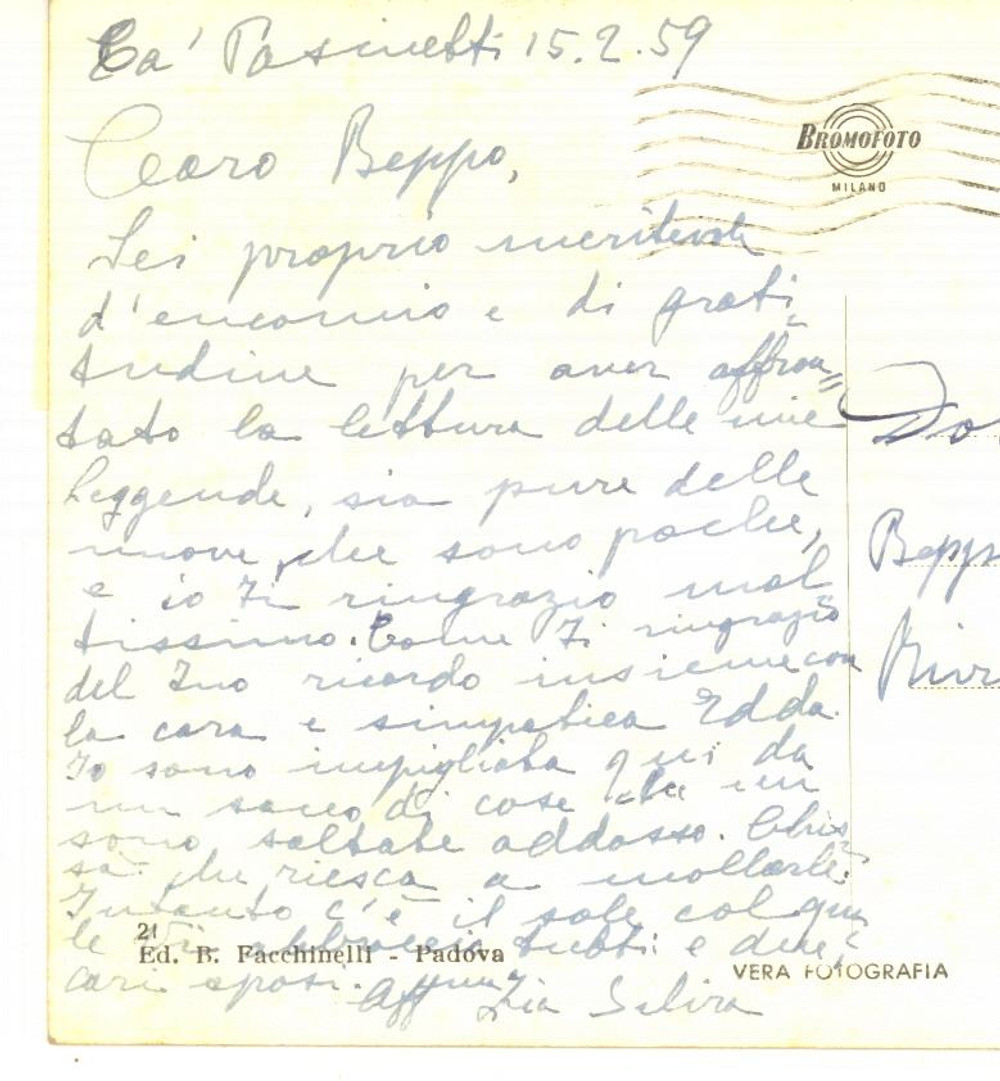 Ca' Pasinetti 15.2.59
BROMOFOTO
MILANO
Caro Beppo,
Sei proprio meritevole
d'encomio e di grati-
tudine per aver affron=
tato la lettura delle mie
leggende, sia pure delle
nuove, che sono poche,
e io Ti ringrazio mol
tissimo. Come Ti ringrazio
del Tuo ricordo insieme con
la cara e simpatica Edda.
Io sono impigliata qui da
un sacco di cose che mi
sono saltate addosso. Chis-
sà che riesca a mollarle.
Intanto c'è il sole col qua
le Vi abbraccio tutti e due,
cari sposi. Aff Zia Silvia
21
Ed. B. Facchinelli - Padova
VERA FOTOGRAFIA
Do
Bepp